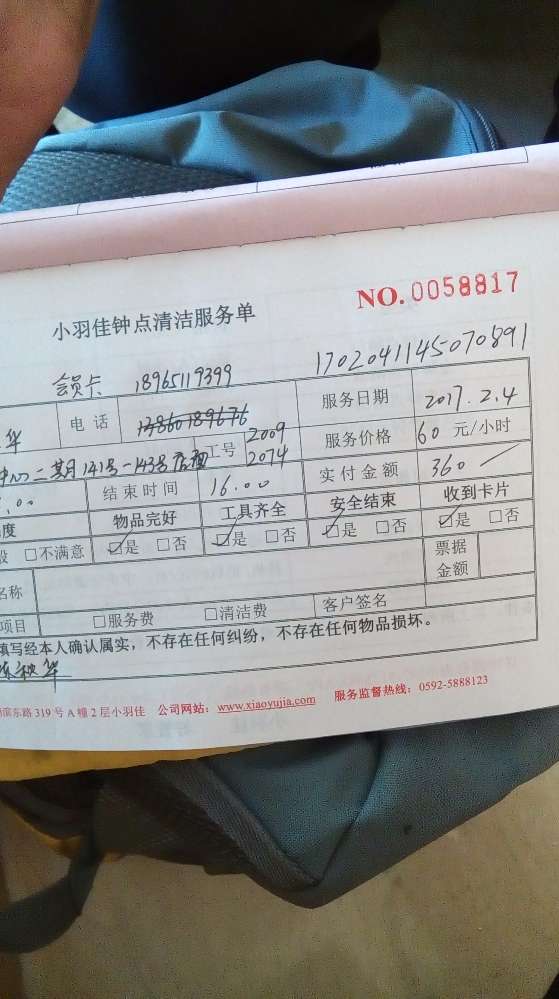 NO. 0058817
小羽佳钟点清洁服务单
会员卡 18965119399 1702041145070891
华 电 话 13860189676 服务日期 2017.2.4
二期141号-143号店面 工号 2009 2074 服务价格 60 元/小时
:00 结束时间 16:00 实付金额 360
度 物品完好 工具齐全 安全结束 收到卡片
□不满意 ☑是 □否 ☑是 □否 ☑是 □否 ☑是 □否
名称 票据金额
项目 □服务费 □清洁费 客户签名
填写经本人确认属实，不存在任何纠纷，不存在任何物品损坏。
华
滨东路 319 号 A 幢 2 层小羽佳 公司网站：www.xiaoyujia.com 服务监督热线：0592-5888123